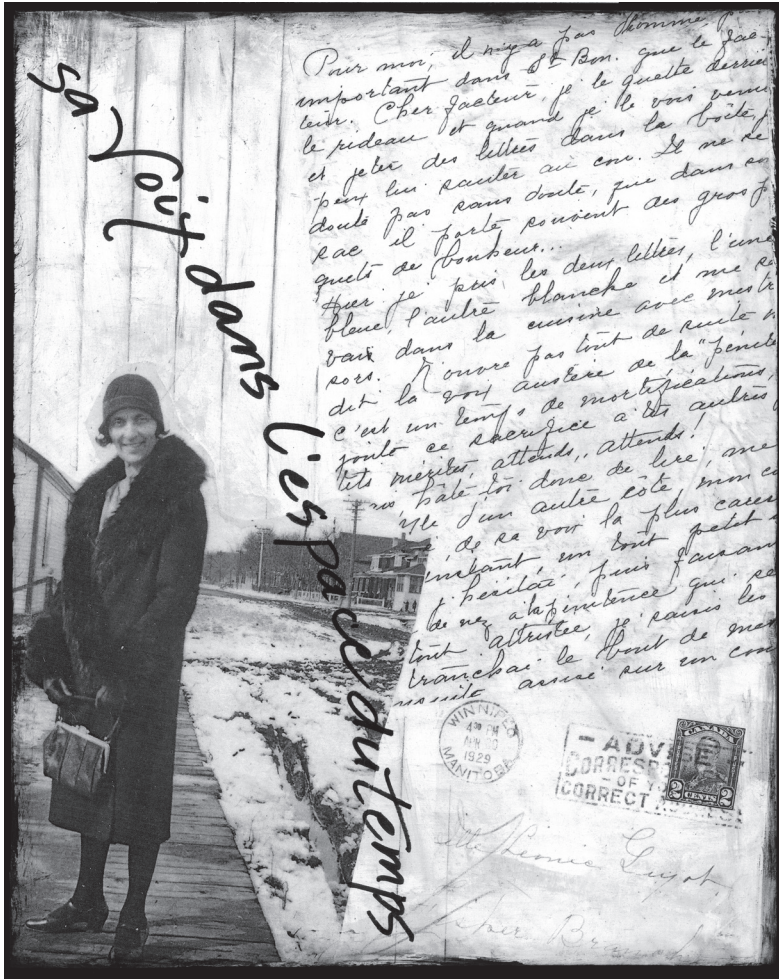 sa voix dans l'espace du temps
Pour moi, il n'y a pas d'homme
important dans St Bon. que le fac-
teur. Cher facteur, je le guette derriè
le rideau et quand je le vois venir
et jeter des lettres dans la boîte, j
peux lui sauter au cou. Il ne se
doute pas sans doute, que dans so
sac il porte souvent des gros p
quets de bonheur...
Hier je pris les deux lettres, l'une
bleue, l'autre blanche et me
dans la cuisine avec mes tr
sors. N'ouvre pas tout de suite
dit la voix austère de la "pénite
c'est un temps de mortifications,
joute ce sacrifice à tes autres
tits mérites, attends,, attends!
hâte toi donc de lire, me
d'un autre côté, mon c
de sa voix la plus cares
instant, un tout petit
hésitai, puis faisan
de nez à la pénitence qui se
tout attristée, je saisis les
tranchai le bout de mes
ensuite assise sur un cou
WINNIPEG
4 30 PM
APR
1929
MANITOBA
- ADV
CORRESP
- OF Y
CORRECT
CANADA
2 CENTS 2
Mlle Léonie Guyot